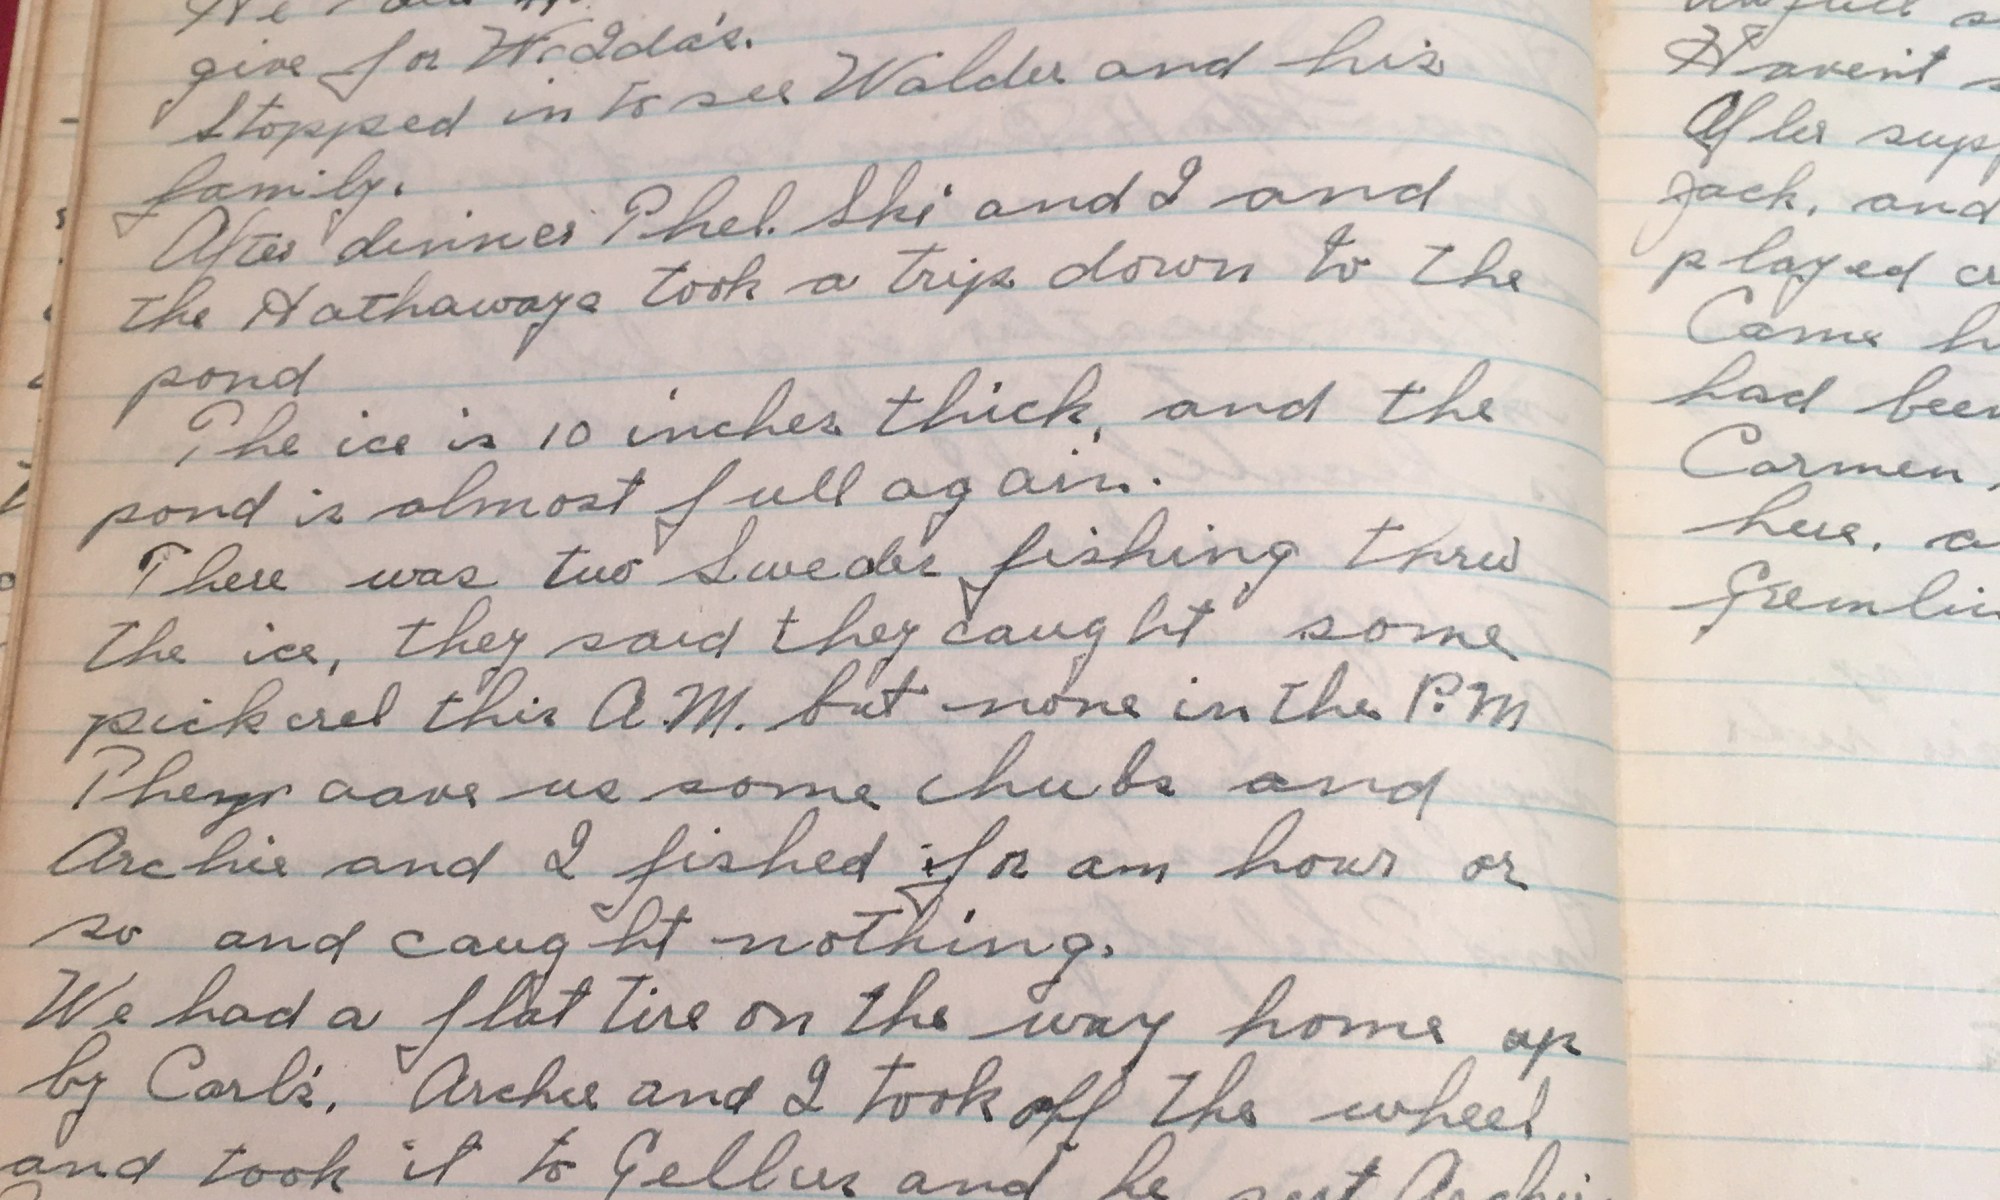 give for
Stopped in to see Walder and his
family.
After dinner Phel. Ski and I and
the Hathaways took a trip down to the
pond
The ice is 10 inches thick, and the
pond is almost full again.
There was two Swedes fishing threw
the ice, they said they caught some
pickerel this A.M. but none in the P.M
They gave us some chubs and
Archie and I fished for an hour or
so and caught nothing.
We had a flat tire on the way home up
by Carl's. Archie and I took off the wheel
and took it to and he
Haven't
After
Jack, and
played
Came
had been
Carmen
here.